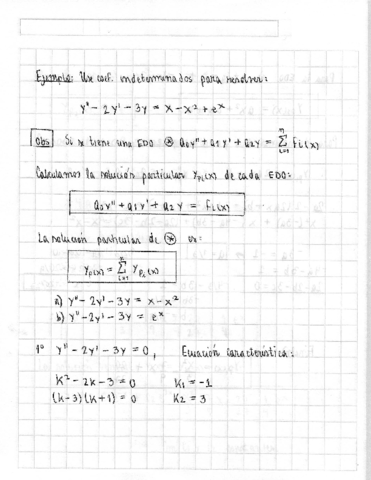 Ejemplo: Use coef. indeterminados para resolver:
y'' - 2y' - 3y = x - x² + eˣ
Obs Si se tiene una EDO ⊛ a₀y'' + a₁y' + a₂y = ∑ᵢ₌₁ⁿ fᵢ(x)
Calculamos la solución particular y_pᵢ(x) de cada EDO:
a₀y'' + a₁y' + a₂y = fᵢ(x)
La solución particular de ⊛ es:
y_p(x) = ∑ᵢ₌₁ⁿ y_pᵢ(x)
a) y'' - 2y' - 3y = x - x²
b) y'' - 2y' - 3y = eˣ
1º y'' - 2y' - 3y = 0, Ecuación característica:
k² - 2k - 3 = 0 k₁ = -1
(k-3)(k+1) = 0 k₂ = 3